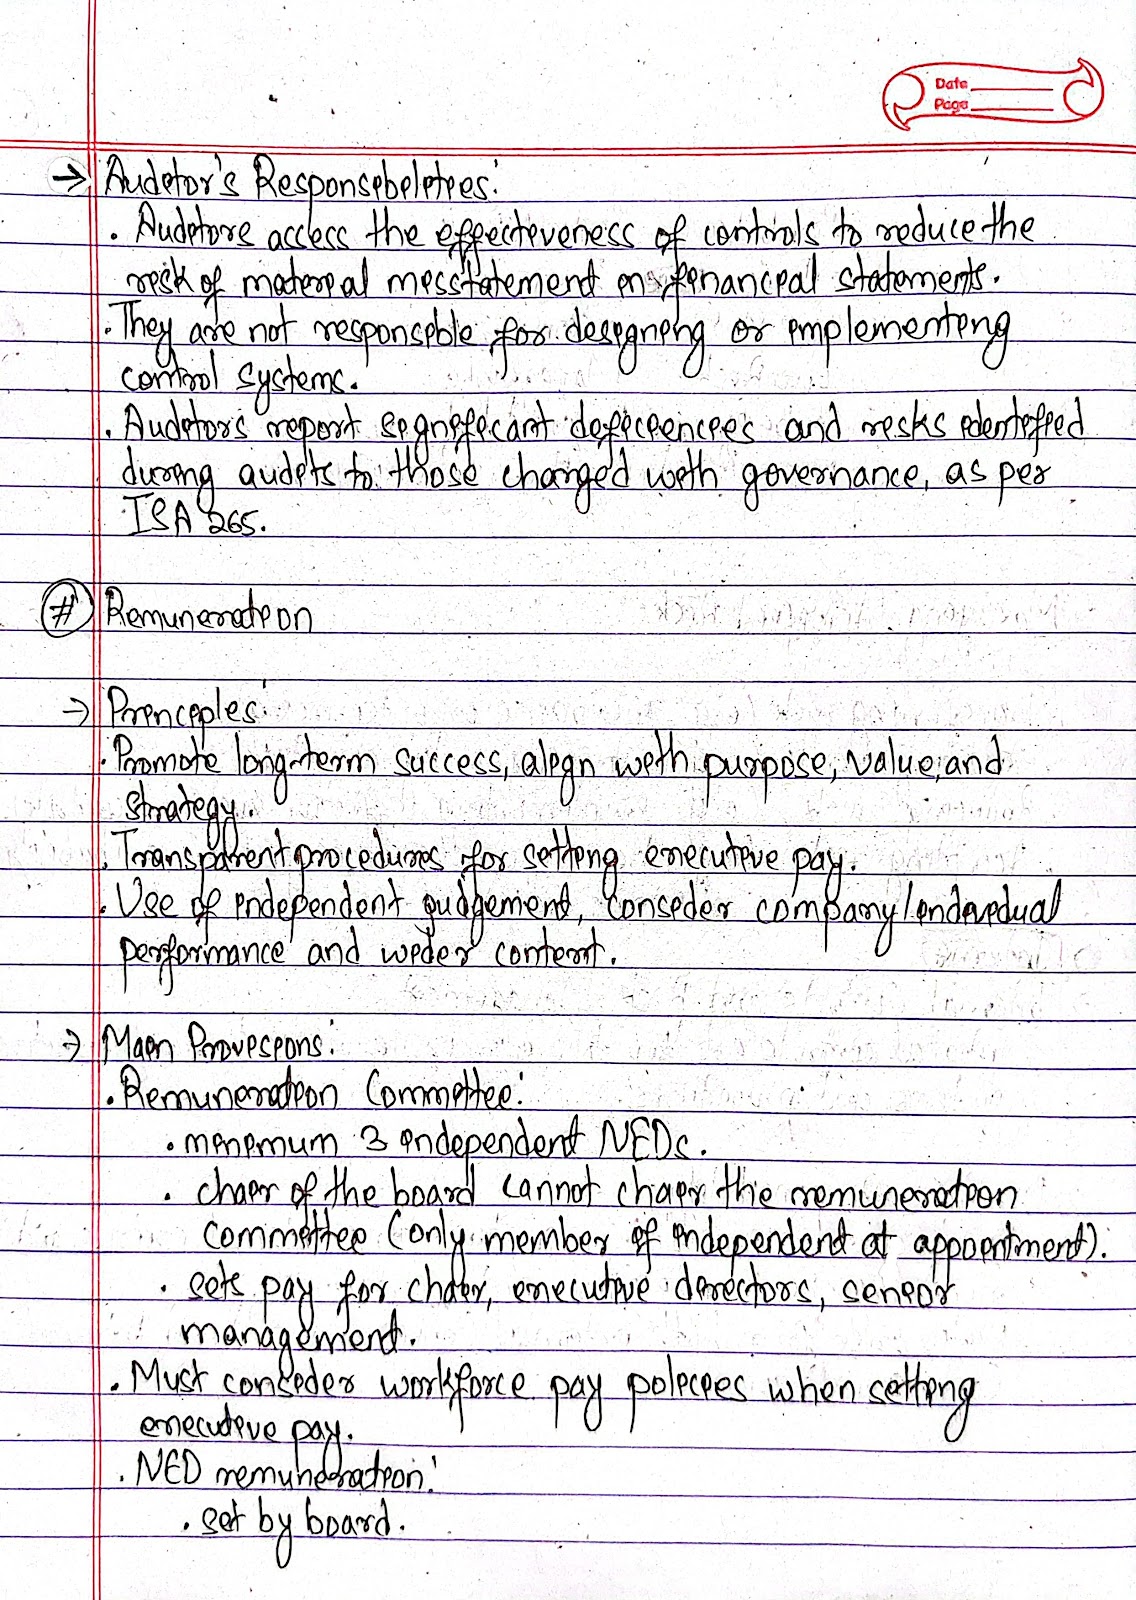 Date
Page
→ Auditor's Responsibilities:
. Auditors access the effectiveness of controls to reduce the
risk of material misstatement in financial statements.
. They are not responsible for designing or implementing
control systems.
. Auditors report significant deficiencies and risks identified
during audits to those changed with governance, as per
ISA 265.
# Remuneration
→ Principles:
. Promote long-term success, align with purpose, value, and
strategy.
. Transparent procedures for setting executive pay.
. Use of independent judgement, consider company/individual
performance and wider context.
→ Main Provisions:
. Remuneration Committee:
. minimum 3 independent NEDs.
. chair of the board cannot chair the remuneration
committee (only member if independent at appointment).
. sets pay for chair, executive directors, senior
management.
. Must consider workforce pay policies when setting
executive pay.
. NED remuneration:
. set by board.